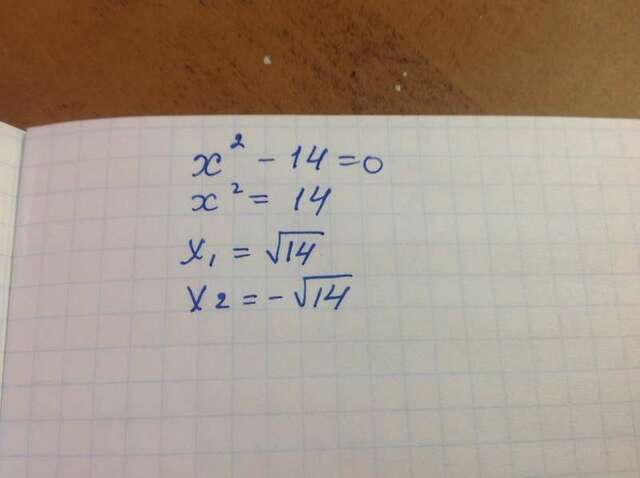 x² - 14 = 0
x² = 14
x₁ = √14
x2 = -√14